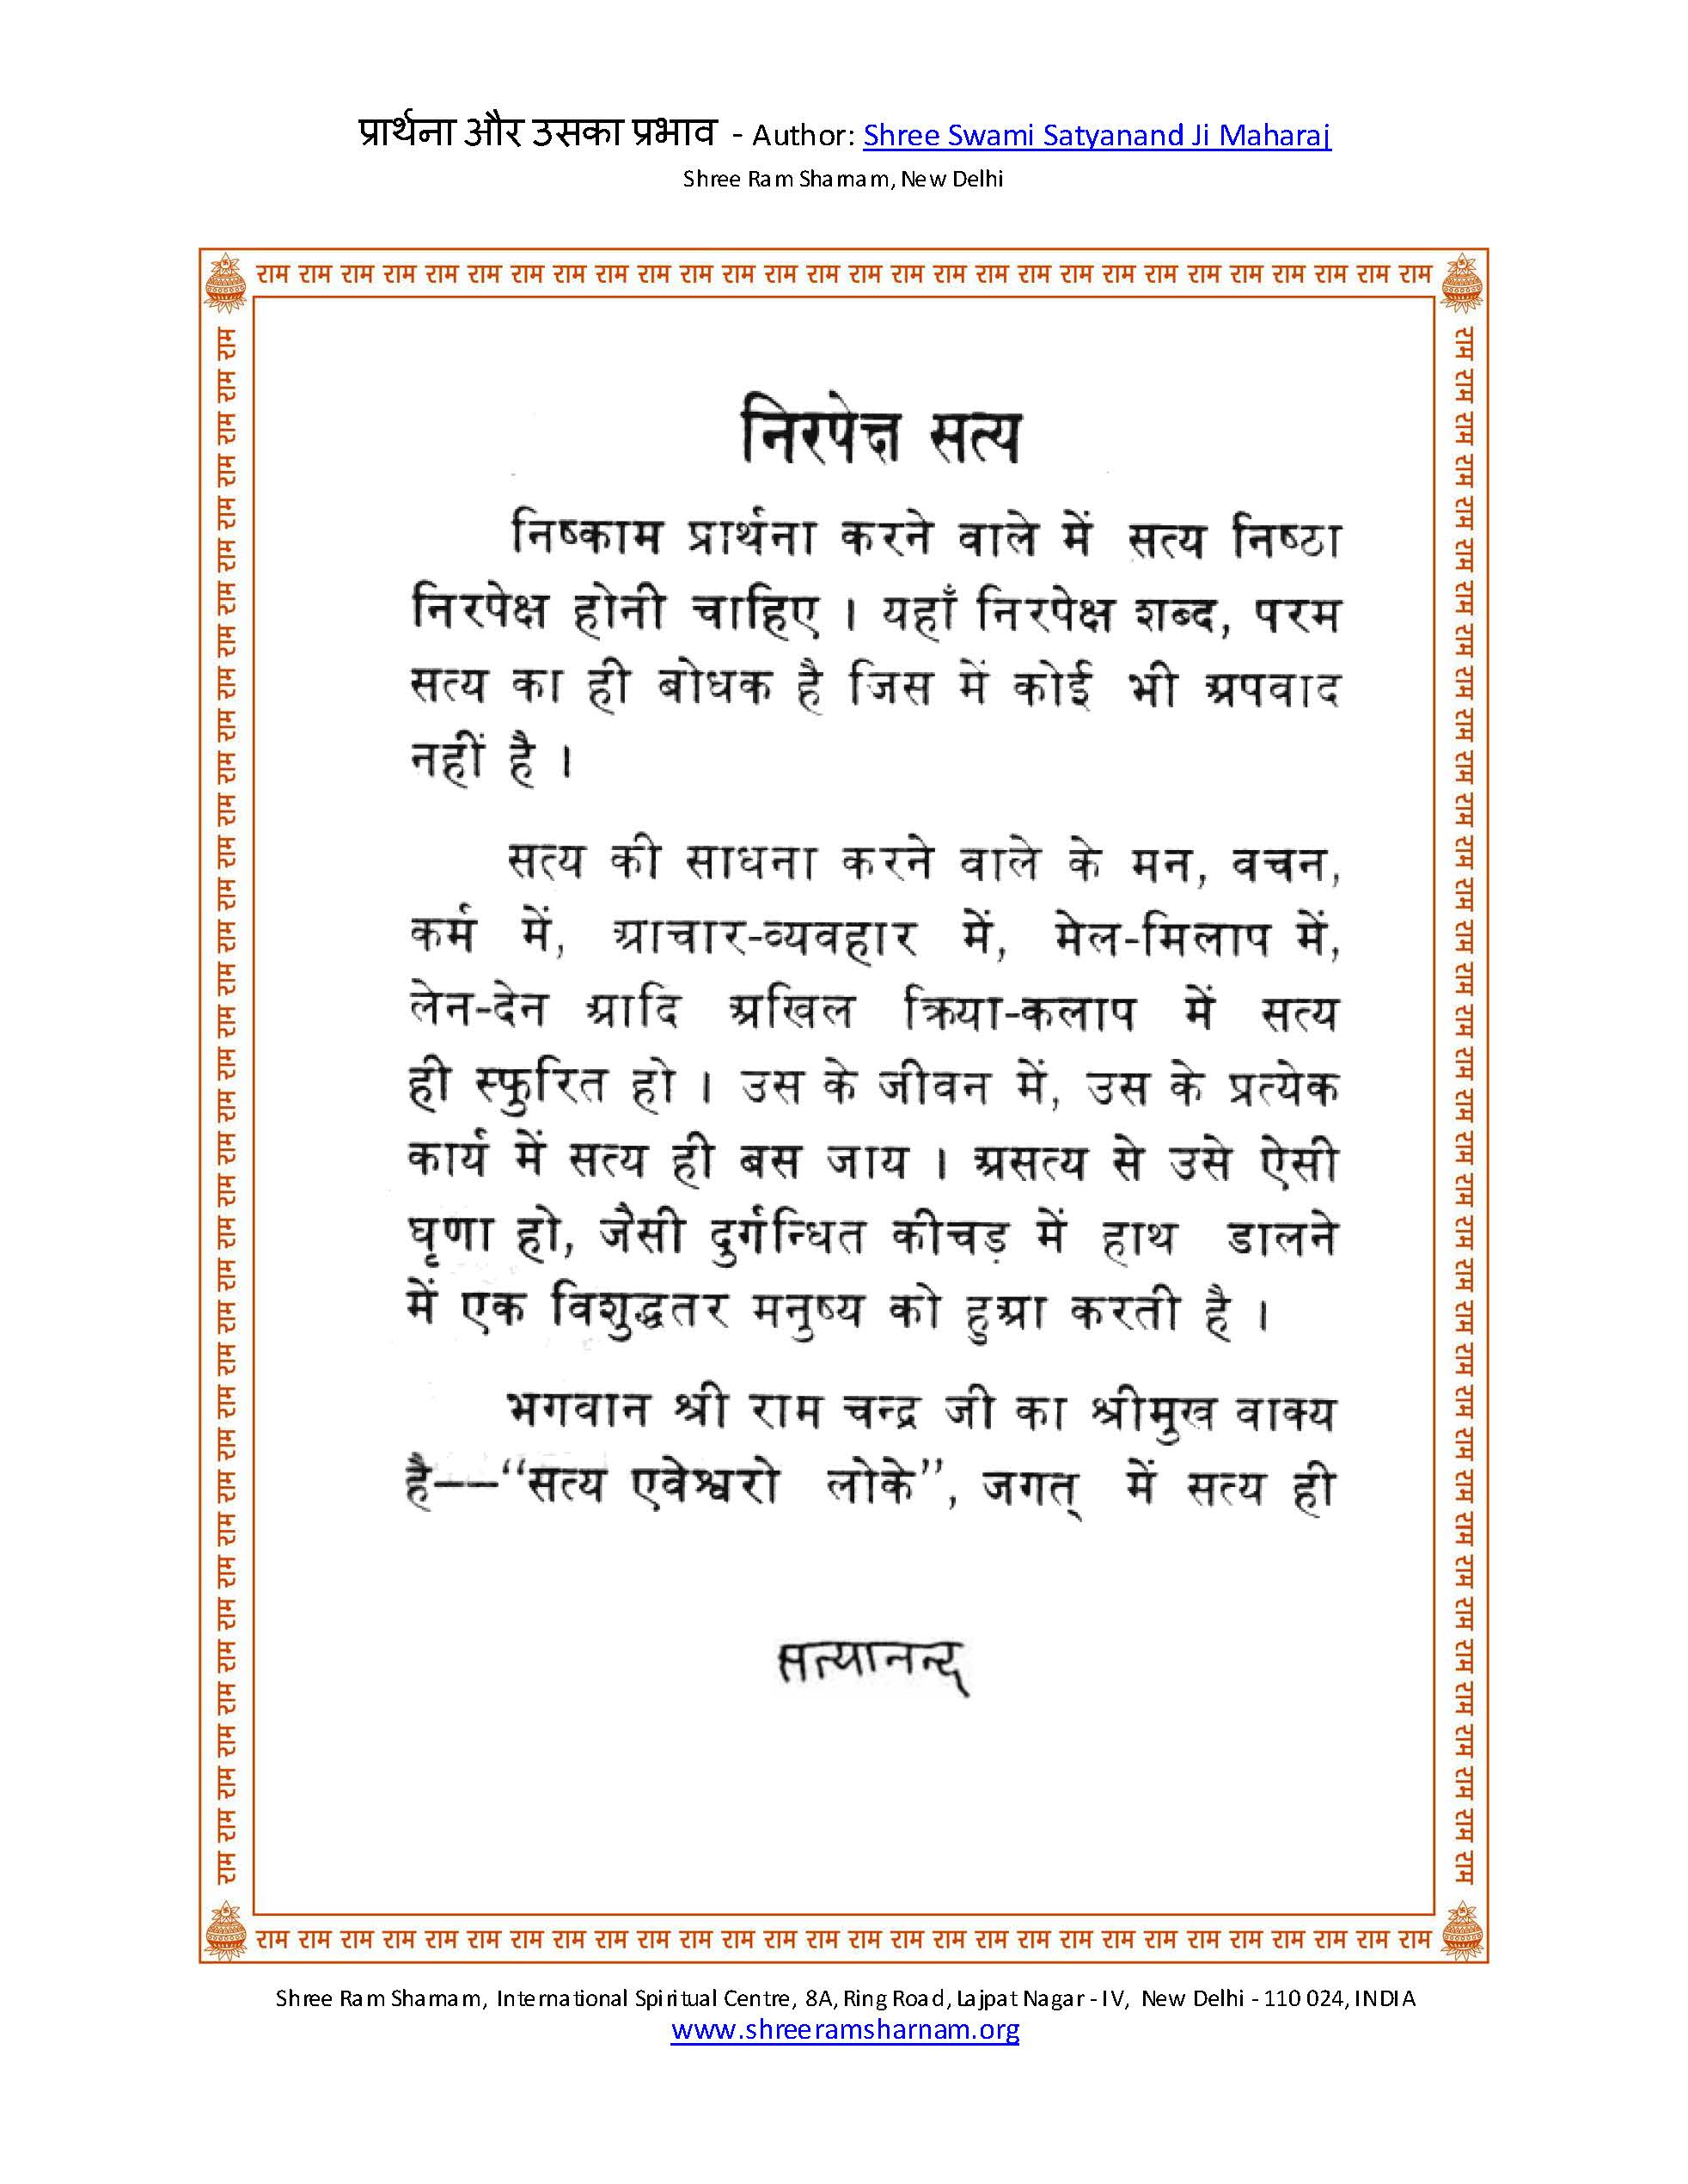 प्रार्थना और उसका प्रभाव - Author: Shree Swami Satyanand Ji Maharaj
Shree Ram Sharnam, New Delhi
राम राम राम राम राम राम राम राम राम राम राम राम राम राम राम राम राम राम राम राम राम राम राम राम राम राम राम राम
निरपेक्ष सत्य
निष्काम प्रार्थना करने वाले में सत्य निष्ठा
निरपेक्ष होनी चाहिए । यहाँ निरपेक्ष शब्द, परम
सत्य का ही बोधक है जिस में कोई भी अपवाद
नहीं है ।
सत्य की साधना करने वाले के मन, वचन,
कर्म में, आचार-व्यवहार में, मेल-मिलाप में,
लेन-देन आदि अखिल क्रिया-कलाप में सत्य
ही स्फुरित हो । उस के जीवन में, उस के प्रत्येक
कार्य में सत्य ही बस जाय । असत्य से उसे ऐसी
घृणा हो, जैसी दुर्गन्धित कीचड़ में हाथ डालने
में एक विशुद्धतर मनुष्य को हुआ करती है ।
भगवान श्री राम चन्द्र जी का श्रीमुख वाक्य
है—–“सत्य एवेश्वरो लोके”, जगत् में सत्य ही
सत्यानन्द
राम राम राम राम राम राम राम राम राम राम राम राम राम राम राम राम राम राम राम राम राम राम राम राम राम राम राम राम
Shree Ram Sharnam, International Spiritual Centre, 8A, Ring Road, Lajpat Nagar - IV, New Delhi - 110 024, INDIA
www.shreeramsharnam.org